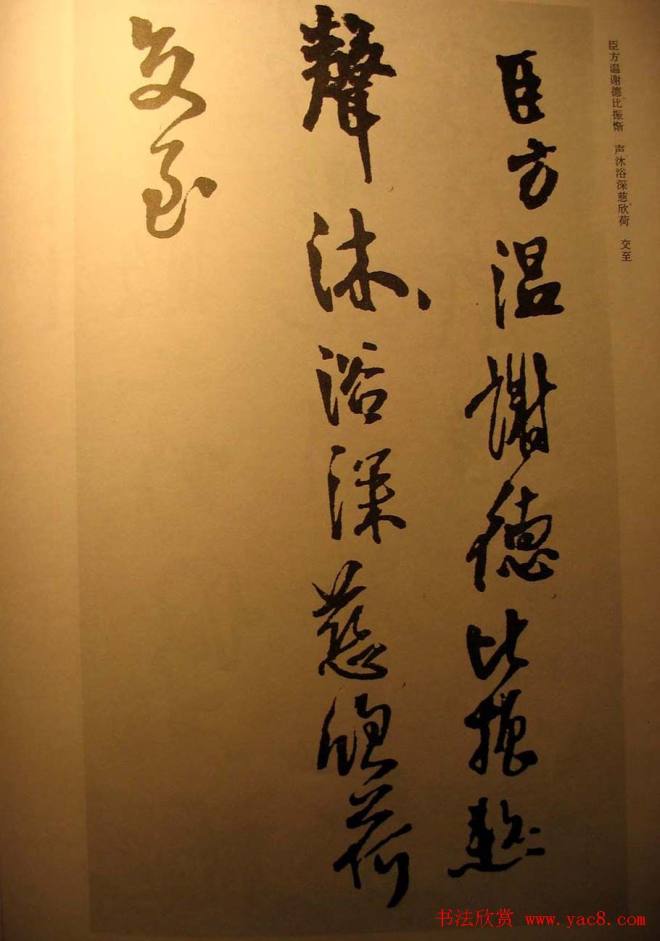 臣方温谢德。比振惭 声沐浴深慈。欣荷 交至
臣方温謝德比振慙
聲沐浴深慈欣荷
交至
书法欣赏 www.yac8.com